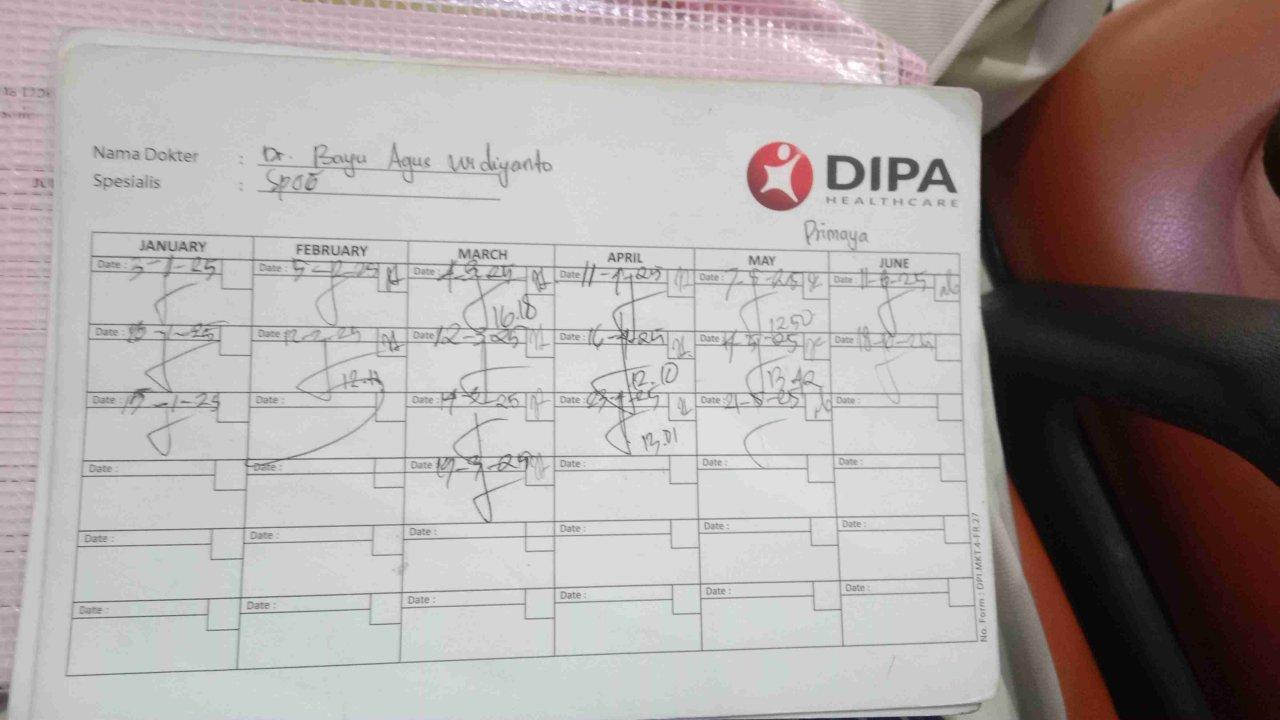 Nama Dokter : Dr. Bayu Agus Widiyanto
Spesialis : SpOG
DIPA
HEALTHCARE
Primaya
JANUARY FEBRUARY MARCH APRIL MAY JUNE
Date : 3-1-25 Date : 5-2-25 Date : 4-3-25 Date : 11-4-25 Date : 7-5-25 Date : 11-6-25
16.18 12.50
Date : 10-1-25 Date : 12-2-25 Date : 12-3-25 Date : 16-4-25 Date : 14-5-25 Date : 18-6-25
12.10 13.42
Date : 15-1-25 Date : Date : 14-3-25 Date : 23-4-25 Date : 21-5-25 Date :
13.01
Date : Date : Date : 19-3-25 Date : Date : Date :
Date : Date : Date : Date : Date : Date :
Date : Date : Date : Date : Date : Date :
No. Form : DPI.MKT.4-FR.27